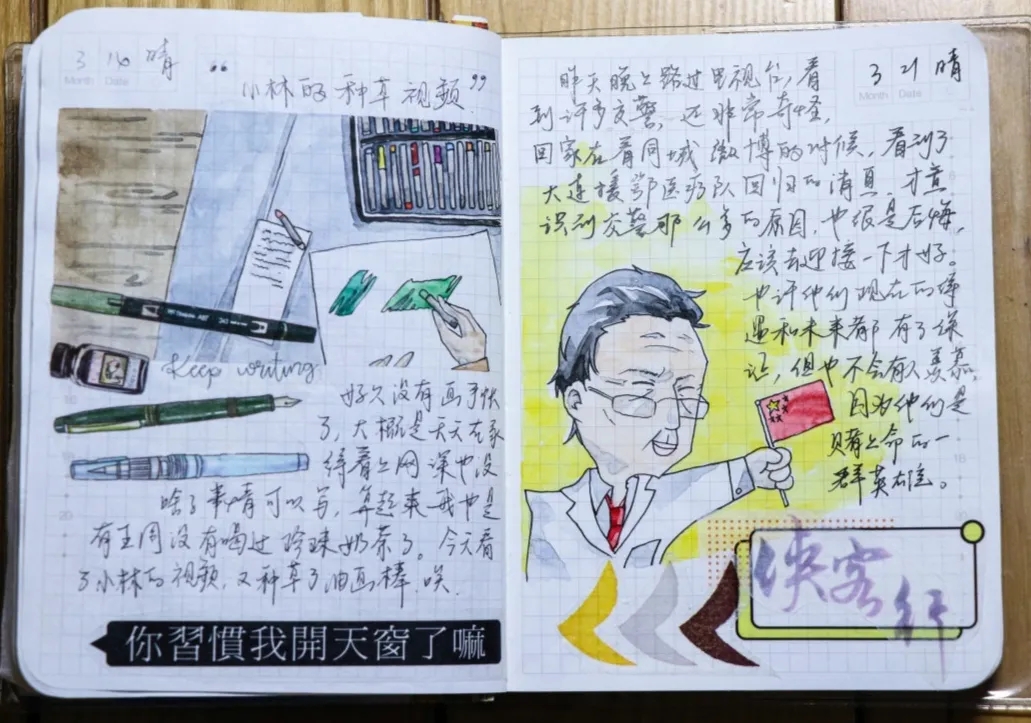 3 16 晴
Month Date
“小林的种草视频”
Keep writing
好久没有画手帐
了，大概是天天在家
待着上网课也没
啥了事情可以写，算起来我也是
有五周没有喝过珍珠奶茶了。今天看
了小林的视频，又种草了油画棒，唉.
你習慣我開天窗了嘛
3 21 晴
Month Date
昨天晚上路过电视台，看
到许多交警，还非常奇怪，
回家在看同城微博的时候，看到了
大连援鄂医疗队回归的消息，才意
识到交警那么多的原因，也很是后悔，
应该去迎接一下才好。
也许他们现在的待
遇和未来都有了保
证，但也不会有人羡慕，
因为他们是
赌上命的一
群英雄。
侠客行